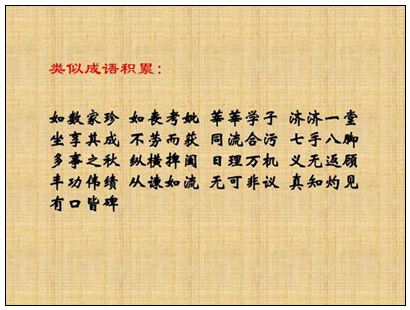 类似成语积累：
如数家珍 如丧考妣 莘莘学子 济济一堂
坐享其成 不劳而获 同流合污 七手八脚
多事之秋 纵横捭阖 日理万机 义无返顾
丰功伟绩 从谏如流 无可非议 真知灼见
有口皆碑